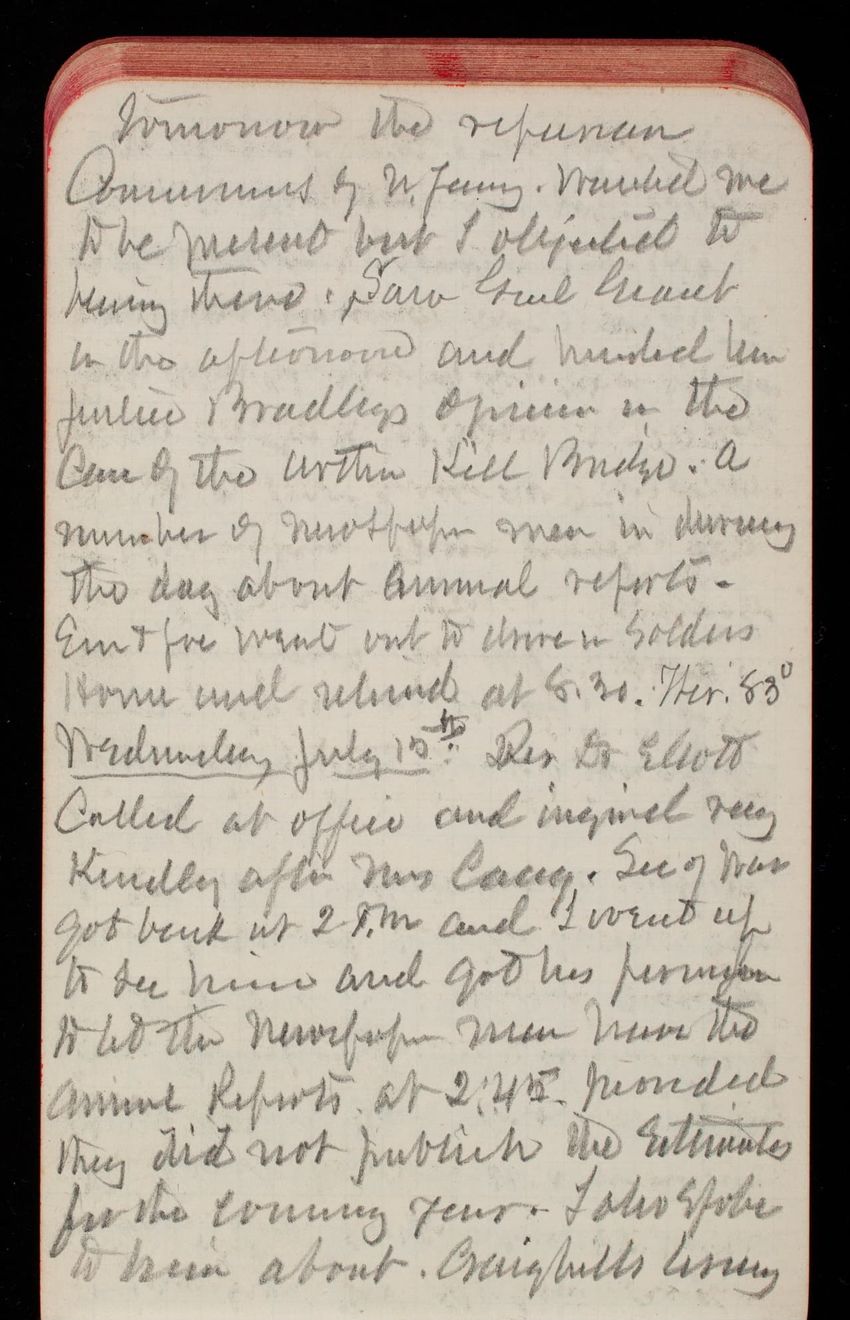 tomorrow the riparian
Commrs of N. Jersey. Wanted me
to be present but I objected to
being there. Saw Genl Grant
in the afternoon and handed him
Justice Bradleys Opinion in the
Case of the Arthur Kill Bridge. A
number of newspaper men in during
the day about annual reports.
Em & Joe went out to drive in Soldiers
Home and returnd at 8.30. Ther. 83°
Wednesday July 15th. Rev Dr Elliott
Called at office and inquired very
Kindly after Mrs Casey. Sec of War
got back at 2 P.M and I went up
to see him and got his permission
to let the Newspaper men have the
Annual Reports at 2:45. provided
they did not publish the Estimates
for the coming year. I also spoke
to him about Craighills